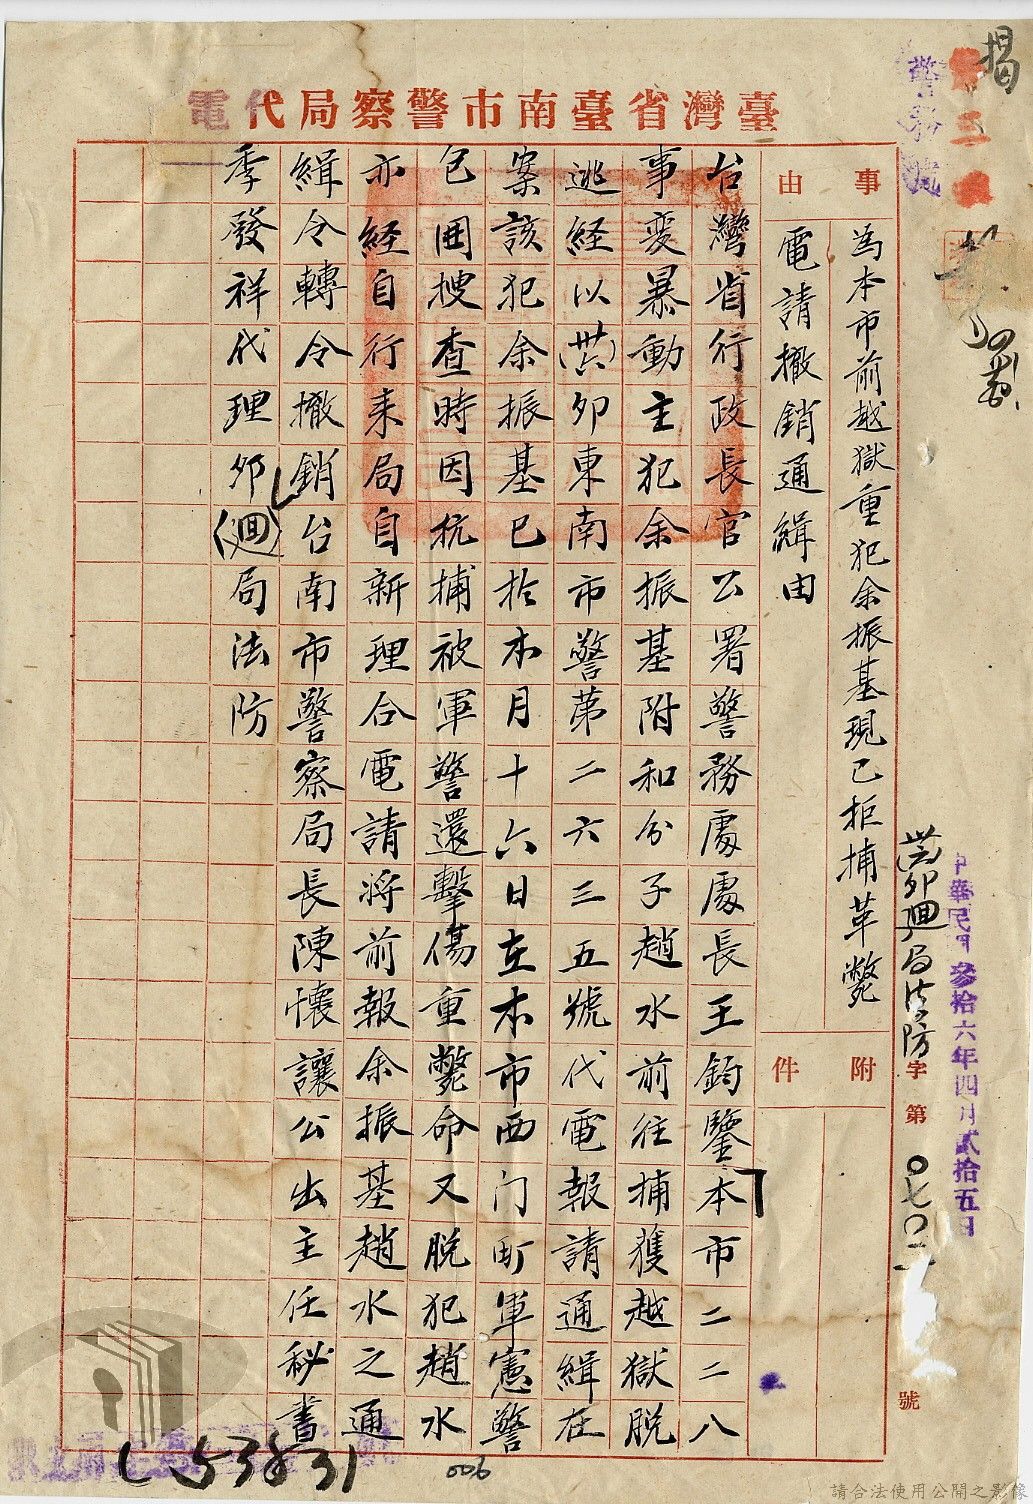 臺灣省臺南市警察局代電
事由
為本市前越獄重犯余振基現已拒捕革斃
電請撤銷通緝由
附件
中華民國參拾六年四月貳拾五日
卯迴局法防字第〇七〇二號
台灣省行政長官公署警務處處長王鈞鑒本市二二八
事変暴動主犯余振基附和分子趙水前往捕獲越獄脫
逃経以(卅六)卯東南市警第二六三五號代電報請通緝在
案該犯余振基已於本月十六日在本市西门町軍憲警
包囲搜查時因抗捕被軍警還擊傷重斃命又脫犯趙水
亦経自行来局自新理合電請將前報余振基趙水之通
緝令轉令撤銷台南市警察局長陳懷讓公出主任秘書
季發祥代理卯(迴)局法防
揭
警務處
L53831
006
請合法使用公開之影像